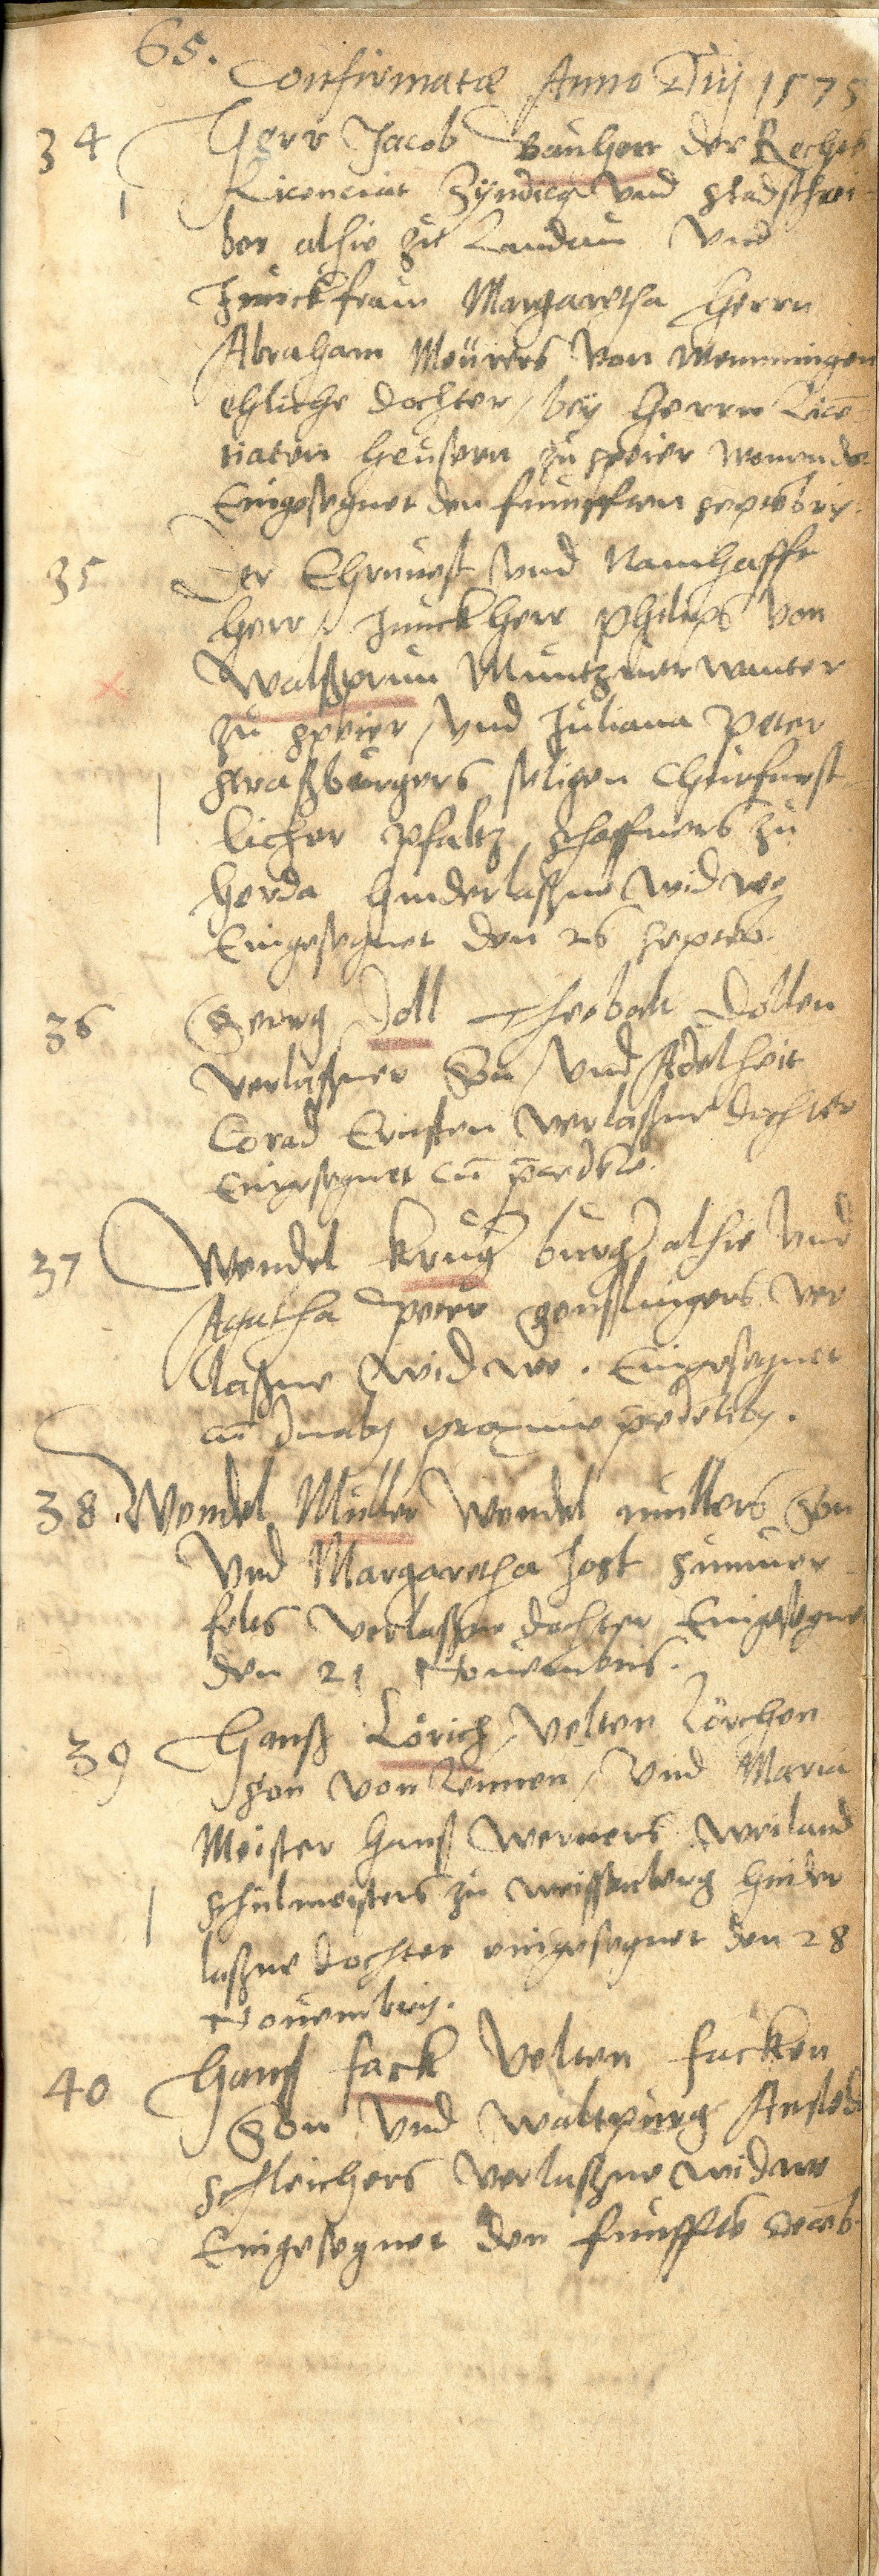 65.
Confirmatæ Anno Dnj 1575
34 Herr Jacob Bauherr der Rechte
Licenciat Syndicq und stadschrei-
ber alhie zu Landau und
Junckfraw Margaretha Herrn
Abraham Meürers von Memmingen
ehliche dochter / bey Herrn Licē-
tiaten Heüsern zu speier wonende
Eingesegnet den fünfften septēbris.
35 Der Ehrnuest und Namhaffte
Herr / Junckherr Philips von
Walßprun Müntzmerwanter
zu speier / und Juliana Peter
straßburgers seligen Churfurst-
licher Pfaltz schaffners zu
Herda hinderlaßne widwe
Eingesegnet den 26 septēb.
36 Georg Doll Theobalt Dollen
verlaßner Son / und Adelheit
Corad Ernsten verlaßne dochter
Eingesegnet cū p̄cedēte.
37 Wendel Krug burger alhie und
Agatha Peter genßlingers ver
laßne widwe. Eingesegnet
cū duabq proxime p̄cedētibq.
38. Wendel Müller Wendel müllers Son
und Margaretha Jost Summer-
felts verlaßne dochter Eingesegnet
den 21 Nouembris.
39 Hanß Lörich / velten Lörchen
son von / und Maria
Meister Hanß Werners weiland
schulmeisters zu weissenberg hinder
laßne dochter eingesegnet den 28
Nouembris.
40 Hans fack velten facken
Son und waltpurg
schleichers verlaßne widwe
Eingesegnet den fünfftē decēb.